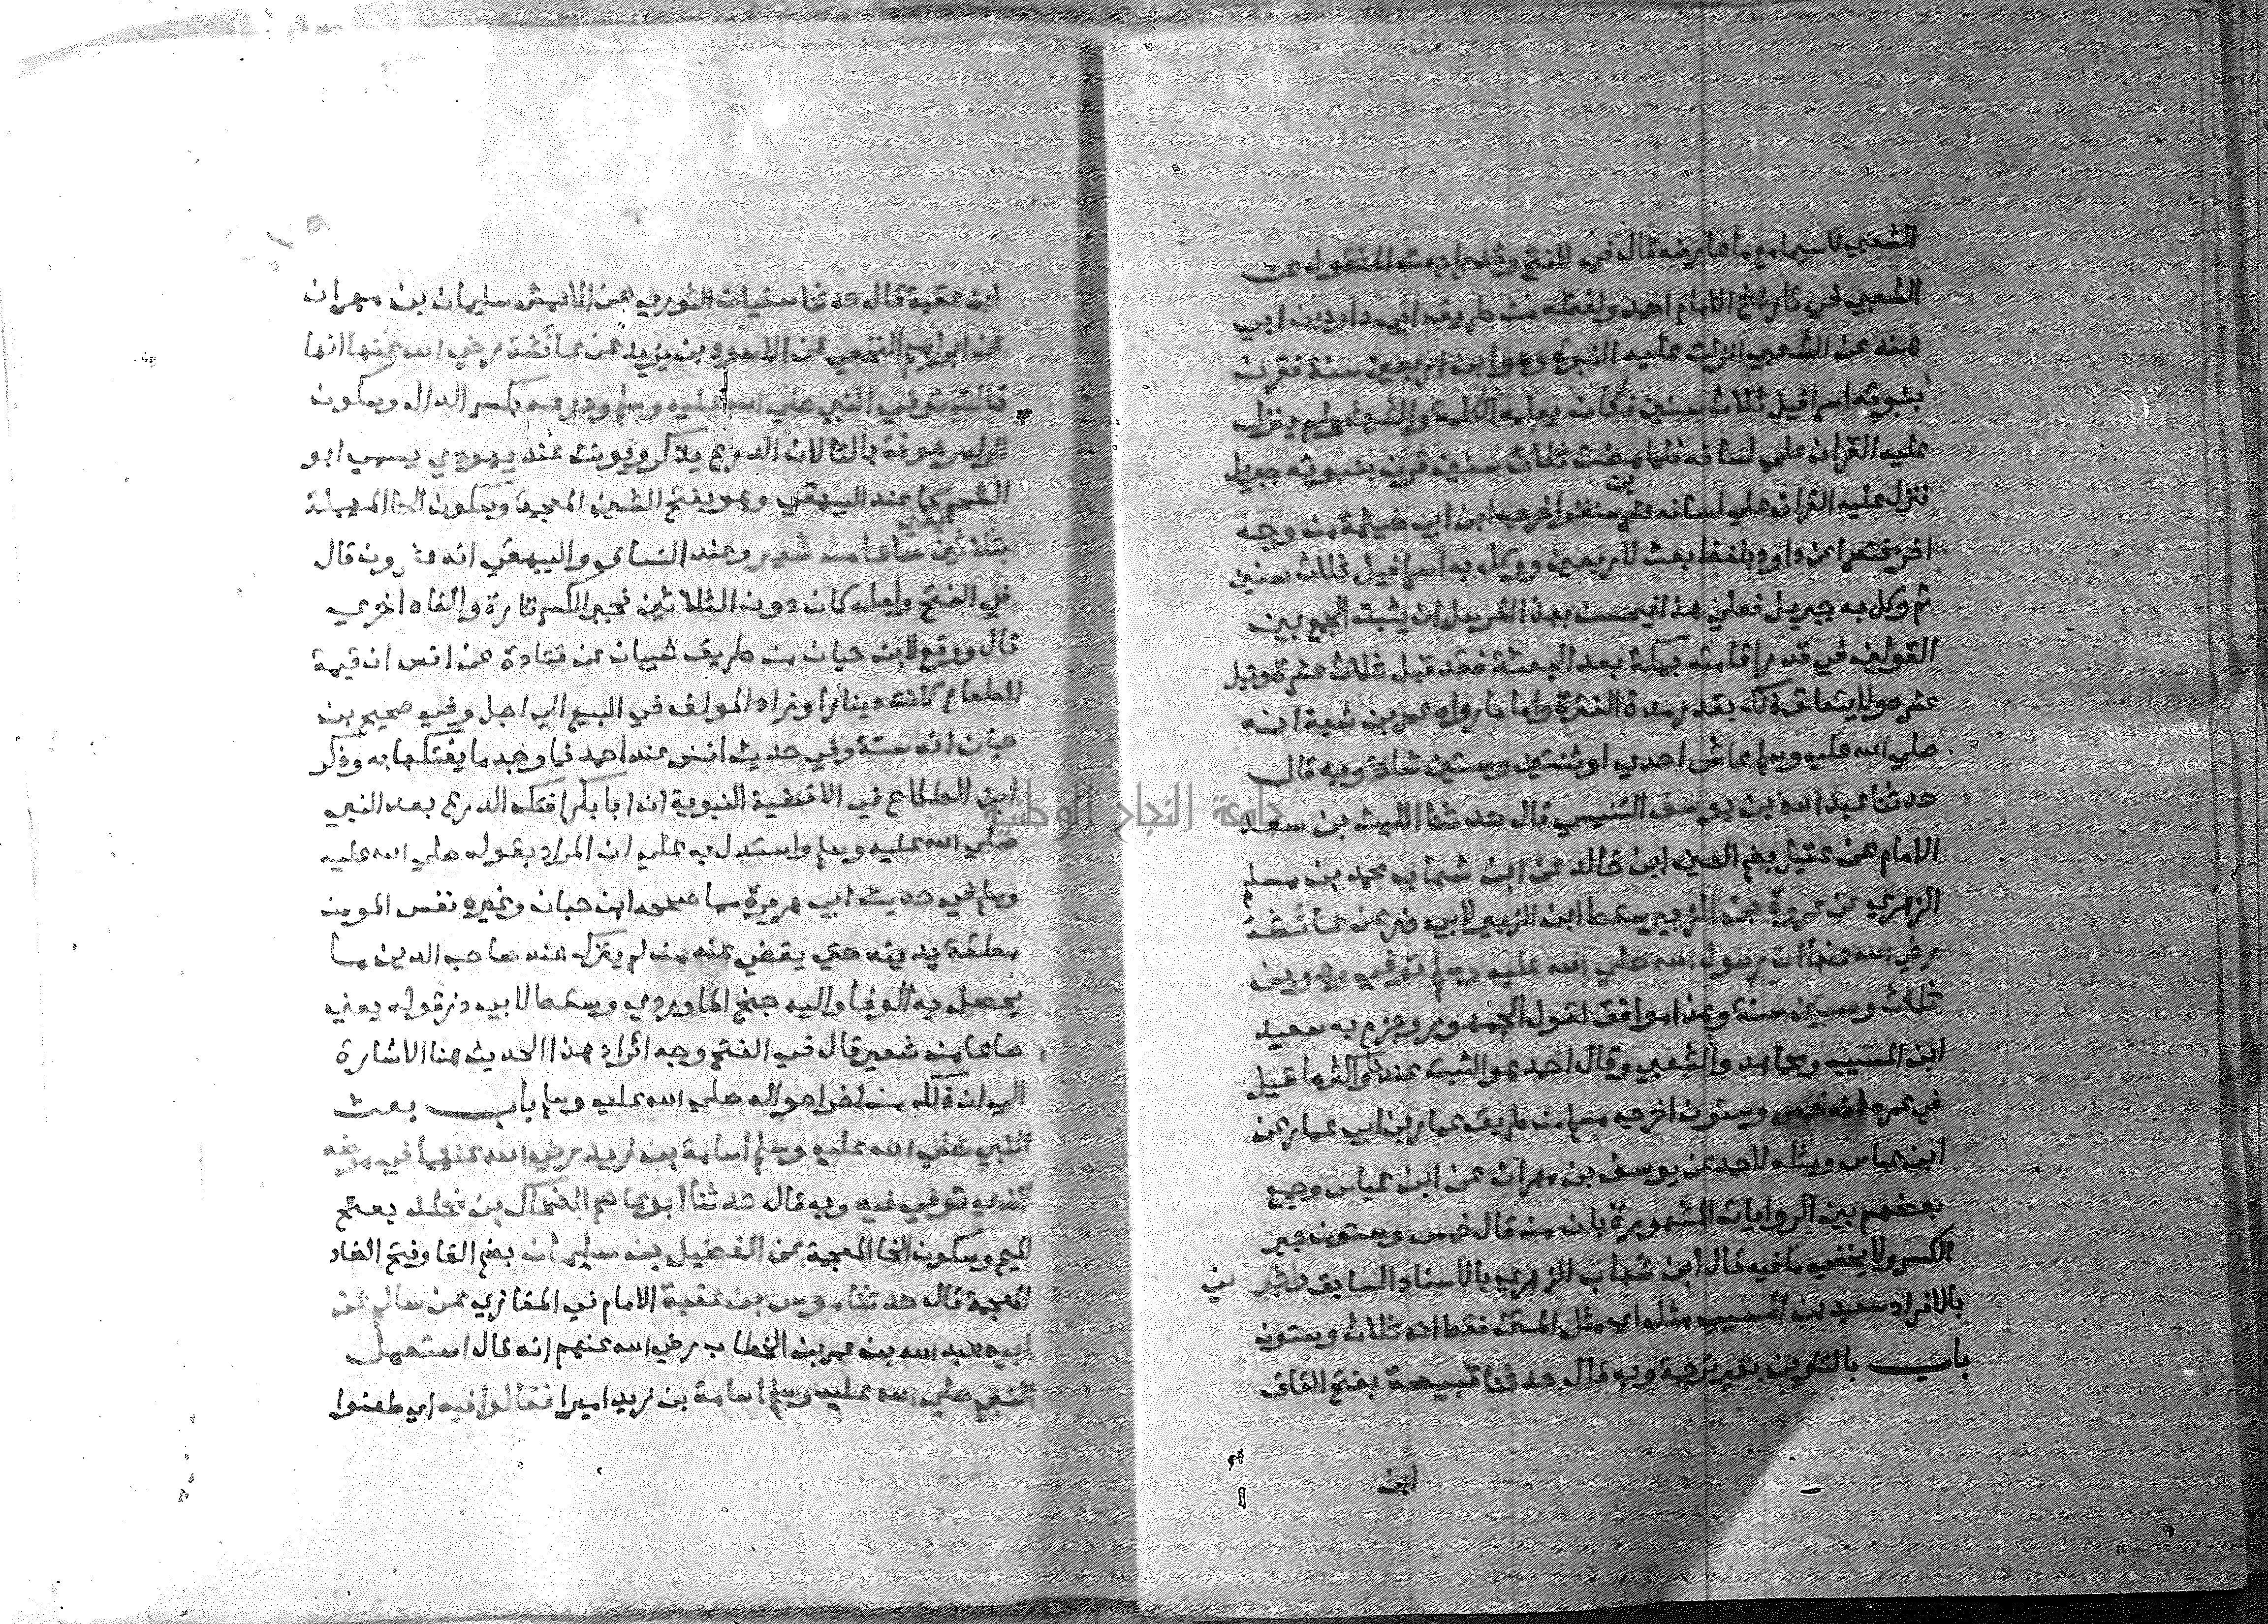 الشعبي لاسيما مع ما عارضه قال في الفتح وقد راجعت المنقول عن
الشعبي في تاريخ الامام احمد ولفظه من طريق ابي داود بن ابي
هند عن الشعبي انزلت عليه النبوة وهو ابن اربعين سنة فقرن
بنبوته اسرافيل ثلاث سنين فكان يعلمه الكلمة والشيئ ولم ينزل
عليه القران علي لسانه فلما مضت ثلاث سنين قرن بنبوته جبريل
فنزل عليه القران علي لسانه عشرين سنة واخرجه ابن ابي خيثمة من وجه
اخر مختصرا عن داود بلفظ بعث لاربعين ووكل به اسرافيل ثلاث سنين
ثم وكل به جبريل فعلي هذا فيحسن بهذا المرسل ان يثبت الجمع بين
القولين في قدر اقامته بمكة بعد البعثة فقد قيل ثلاث عشرة وقيل
عشره ولا يتعلق ذلك بقدر مدة الفترة واما ما رواه عمر بن شبة انه
صلي الله عليه وسلم عاش احدي او ثنتين وستين شاذ وبه قال
حدثنا عبد الله بن يوسف التنيسي قال حدثنا الليث بن سعد
الامام عن عقيل بضم العين ابن خالد عن ابن شهاب محمد بن مسلم
الزهري عن عروة بن الزبير سقط ابن الزبير لابي ذر عن عائشة
رضي الله عنها ان رسول الله صلي الله عليه وسلم توفي وهو بن
ثلاث وستين سنة وهذا موافق لقول الجمهور وجزم به سعيد
ابن المسيب ومجاهد والشعبي وقال احمد هو الثبت عندنا واكثر ما قيل
في عمره انه خمس وستون اخرجه مسلم من طريق عمار بن ابي عمار عن
ابن عباس ومثله لاحمد عن يوسف بن مهران عن ابن عباس وجمع
بعضهم بين الروايات المشهورة بان من قال خمس وستون جبر
الكسر ولا يخفي ما فيه قال ابن شهاب الزهري بالاسناد السابق واخبرني
بالافراد سعيد بن المسيب مثله اي مثل المتن فقط انه ثلاث وستون
باب بالتنوين بغير ترجمة وبه قال حدثنا قبيصة بفتح القاف
ابن
ابن عقبة قال حدثنا سفيان الثوري عن الاعمش سليمان بن مهران
عن ابراهيم النخعي عن الاسود بن يزيد عن عائشة رضي الله عنها انها
قالت توفي النبي صلي الله عليه وسلم ودرعه بكسر الدال وسكون
الرا مرهونة بالتا لان الدرع يذكر ويونث عند يهودي يسمي ابو
الشحم كما عند البيهقي وهو بفتح الشين المعجمة وسكون الحا المهملة
بثلاثين يعني صاعا من شعير وعند النساي والبيهقي انه عشرون قال
في الفتح ولعله كان دون الثلاثين فجبر الكسر تارة والغاه اخري
قال ووقع لابن حبان من طريق شيبان عن قتادة عن انس ان قيمة
الطعام كانت دينارا وزاد المولف في البيع الي اجل وفي صحيح بن
حبان انه ستة وفي حديث انس عند احمد فما وجد ما يفتكها به وذكر
ابن الطلاع في الاقضية النبوية ان ابا بكر افتك الدرع بعد النبي
صلي الله عليه وسلم واستدل به علي ان المراد بقوله صلي الله عليه
وسلم في حديث ابي هريرة مما صححه ابن حبان وغيره نفس المومن
معلقة بدينه حتي يقضي عنه من لم يترك عند صاحب الدين ما
يحصل به الوفا واليه جنح الماوردي وسقط لابي ذر قوله يعني
صاعا من شعير قال في الفتح وجه ايراد هذا الحديث هنا الاشارة
الي ان ذلك من اخر احواله صلي الله عليه وسلم باب بعث
النبي صلي الله عليه وسلم اسامة بن زيد رضي الله عنهما في مرضه
الذي توفي فيه وبه قال حدثنا ابو عاصم الضحاك بن مخلد بفتح
الميم وسكون الخا المعجمة عن الفضيل بن سليمان بضم الفا وفتح الضاد
المعجمة قال حدثنا موسي بن عقبة الامام في المغازي عن سالم عن
ابيه عبد الله بن عمر بن الخطاب رضي الله عنهم انه قال استعمل
النبي صلي الله عليه وسلم اسامة بن زيد اميرا فقالوا فيه اي طعنوا
جامعة النجاح الوطنية